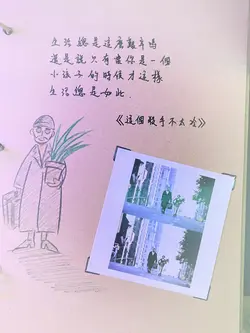 生活總是這麼艱辛嗎
還是說只有當你是一個
小孩子的時候才這樣
生活總是如此.
《這個殺手不太冷》